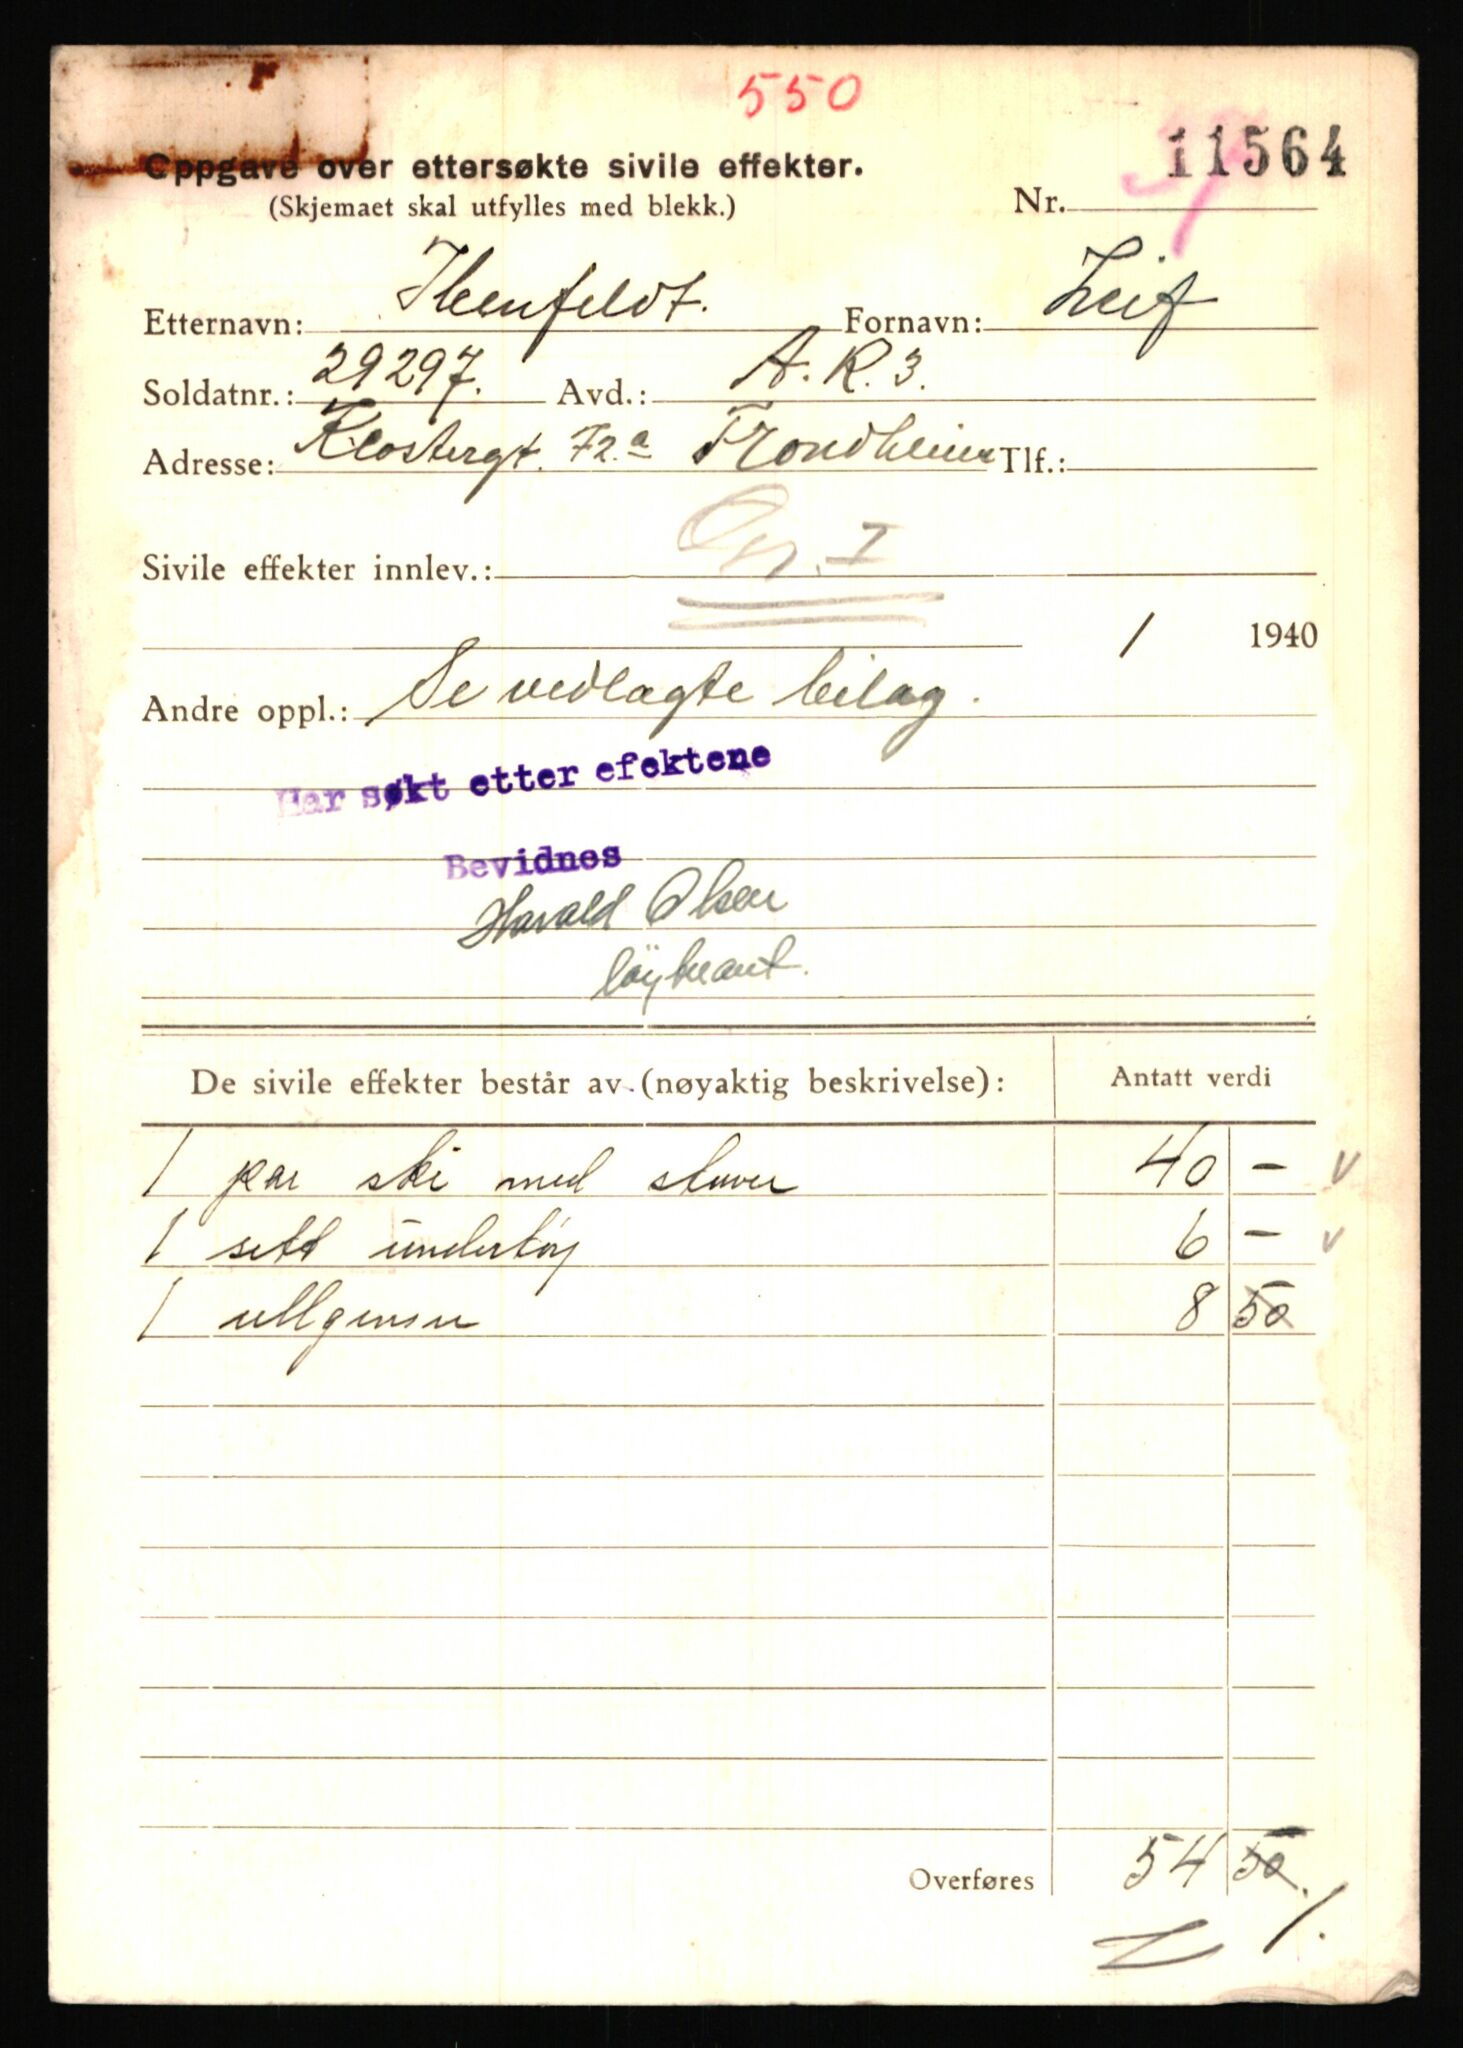 550
11564
Oppgave over ettersøkte sivile effekter.
(Skjemaet skal utfylles med blekk.) Nr.
Etternavn: Ibenfeldt. Fornavn: Leif
Soldatnr.: 29297. Avd.: A.R.3.
Adresse: Klostergt. 72a Trondheim Tlf.:
Sivile effekter innlev.: Gr. I
/ 1940
Andre oppl.: Se vedlagte bilag.
Har søkt etter efektene
Bevidnes
Harald Olsen
løytnant.
De sivile effekter består av (nøyaktig beskrivelse): Antatt verdi
1 par ski med staver 40 – v
1 sett undertøy 6 – v
1 ullgenser 8 50
Overføres 54 50